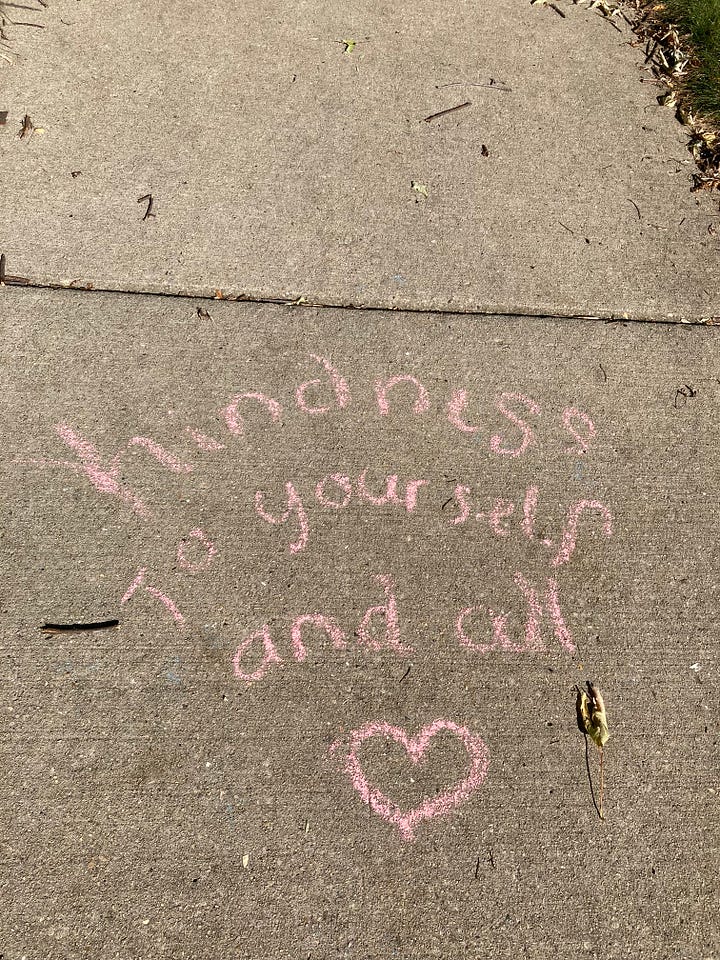 kindness
To yourself
and all